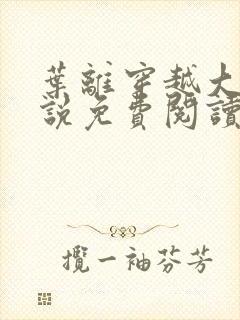 葉離穿越大
說免費閱讀
攬一袖芬芳